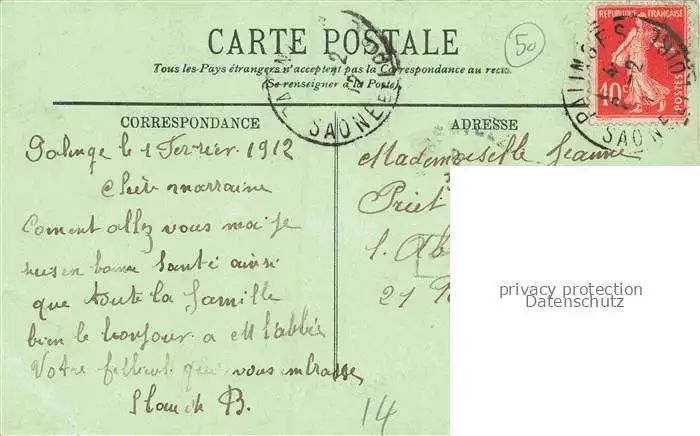 CARTE POSTALE
Tous les Pays étrangers n'acceptent pas la Correspondance au recto.
(Se renseigner à la Poste)
50
REPUBLIQUE FRANÇAISE
10c
POSTES
PALINGES
SAONE
SAONE
CORRESPONDANCE
ADRESSE
Palinge le 1 Fevrier 1912
Chère marraine
Coment allez vous moi je
suis en bonne santé ainsi
que toute la famille
bien le bonjour a M l'abbé
Votre filleul qui vous embrasse
B.
Mademoiselle Jeanne
l. Ab
21
14
privacy protection
Datenschutz